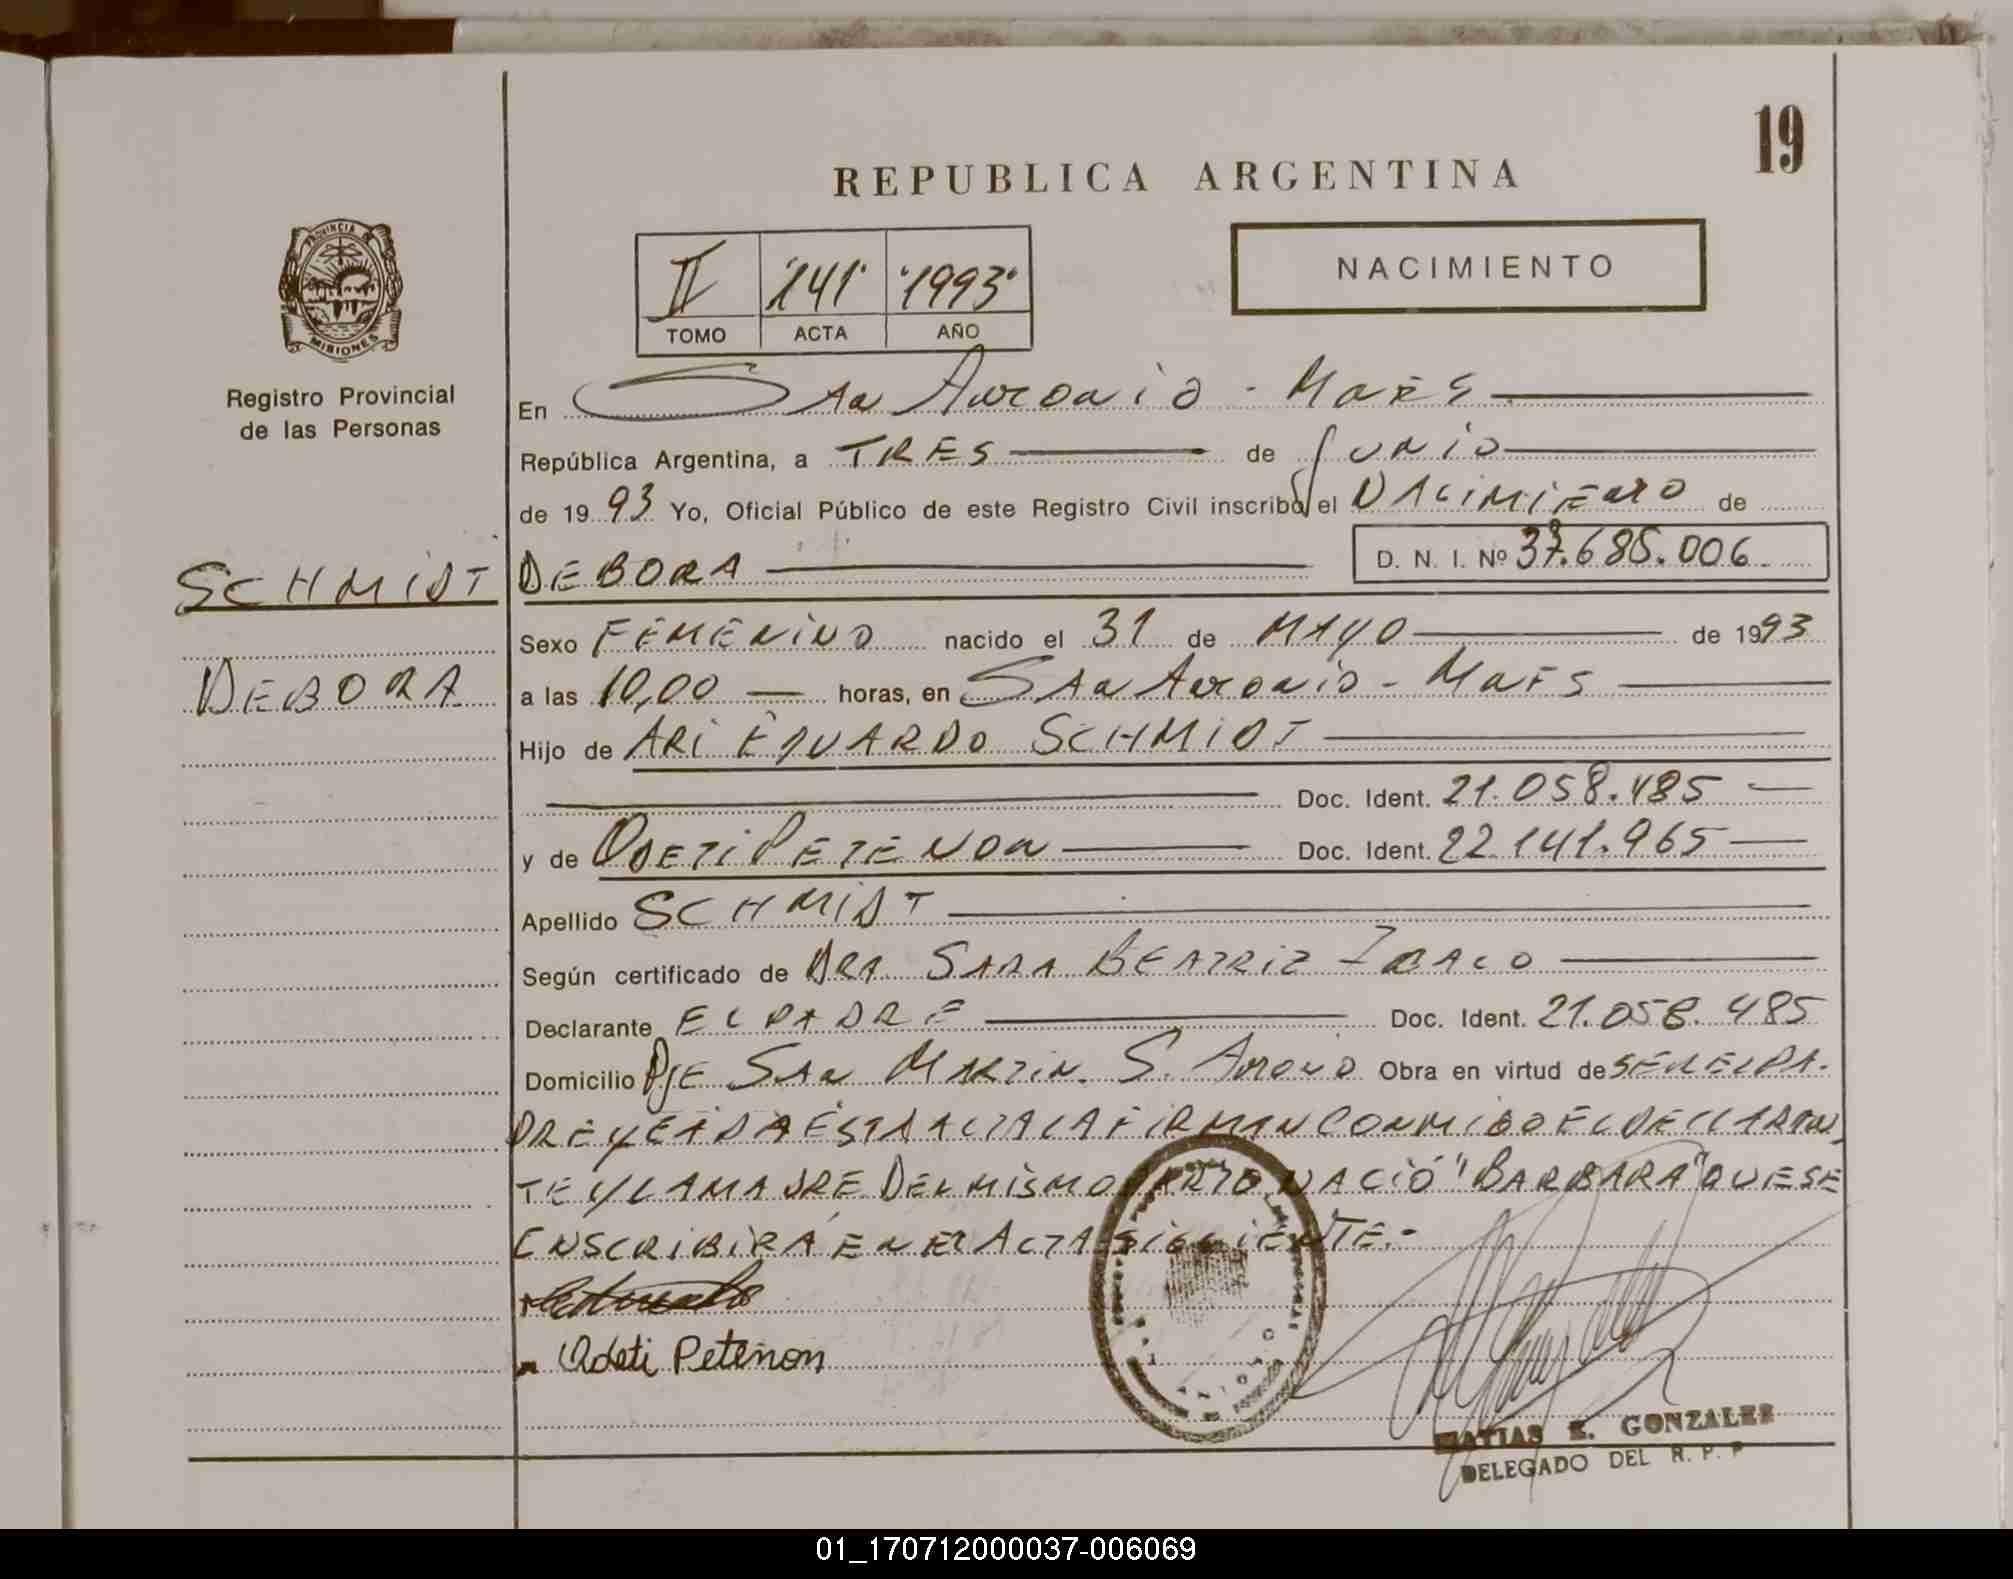 19
REPUBLICA ARGENTINA
PROVINCIA DE
MISIONES
Registro Provincial
de las Personas
II 141 1993
TOMO ACTA AÑO
NACIMIENTO
En SAN ANTONIO - MNES
República Argentina, a TRES de JUNIO
de 1993 Yo, Oficial Público de este Registro Civil inscribo el NACIMIENTO de
SCHMIDT DEBORA D. N. I. Nº
Sexo FEMENINO nacido el 31 de MAYO de 1993
DEBORA a las 10,00 horas, en SAN ANTONIO - MNES
Hijo de ARI EDUARDO SCHMIDT
Doc. Ident. 21.058.485
y de ODETI PETENON Doc. Ident. 22.141.965
Apellido SCHMIDT
Según certificado de DRA SARA BEATRIZ
Declarante EL PADRE Doc. Ident. 21.058.485
Domicilio PJE SAN MARTIN. S. ANTONIO Obra en virtud de SER EL PA-
DRE LEIDA ESTA ACTA LA FIRMAN CONMIGO EL DECLARAN
TE Y LA MADRE DEL MISMO PARTO NACIÓ "BARBARA" QUE SE
INSCRIBIRÁ EN EL ACTA SIGUIENTE.-
Odeti Petenon
MATIAS E. GONZALES
DELEGADO DEL R. P. P
01_170712000037-006069